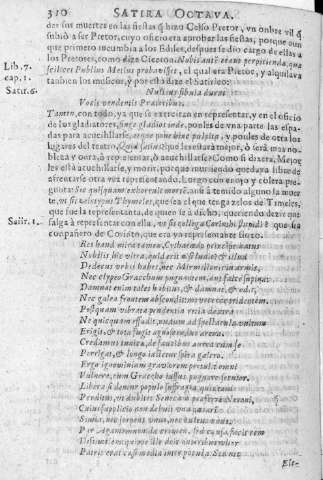 310 SATIRA OCTAVA.
des sus muertes en las fiestas q̃ hizo Celso Pretor, vn onbre vil q̃
a ser Pretor, cuyo oficio era aprobar las fiestas, porque
que primero incumbia a los Ediles, despues se dio cargo de ellas a
los Pretores, como dize Ciceron.
Lib. 7.
cap. 1.
scilicet Publius Metius probavisset, el qual era Pretor, y alquilava
tambien los musicos, y por esto dize el Satirico:
Satir. 6.
Nullius fibula durat
Vocis vendentis Prætoribus.
Tanto, con todo, ya que se exercitavan en representar, y en el oficio
de los gladiatores, finge gladios inde, ponles de vna parte las espadas
para acuchillarse, atque pone hinc pulpita, y ponles de otro los
lugares del teatro, Quid satius? que les estará mejor, ò será mas nobleza
y onra, ò representar, ò acuchillarse? Como si dixera, Mejor
les está acuchillarse, y morir, porque muriendo
afrentarse otra vez representando. Luego con enojo y colera
Sic quisquam exhorruit mortẽ
vt sit zelotypus Thymeles, que sea el que tenga zelos de Timeles,
que fue la representanta, de quien se à dicho, queriendo dezir que
Satir. 1.
salga à representar con ella, vt sit collega Corinthi stupidi? que sea
compañero de Corinto, que era vn representante tonto.
Res haud mira tamen, Cytharœdo principe natus
Nobilis
Dedecus vrbis habes, nec Mirmillonis in armis,
Nec clypeo Gracchum pugnantem, aut falce supina:
Damnat enim tales habitus, & damnat, & odit,
Nec galea frontem abscondit:
Postquam vibrata pendentia retia dextra
Nequicquam effudit, nudum ad spectacula vultum
Erigit, & tota fugit agnoscendus arena.
Credamus tunicæ, de faucibus aurea cum se
Porrigat, & longo iactetur spira galero.
Ergo ignominiam graviorem pertulit omni
Vulnere, cum Graccho iussus pugnare secutor.
Libera si dentur populo suffragia, quis tam
Perditus, vt dubitet Senecam præferre Neroni,
Cuius supplicio non debuit vna parari
Simia, nec serpens vnus, nec culeus vnus.
Par Agamemnonidæ crimen, sed causa facit rem
Patris erat cæsi media inter pocula. Sed nec
Ele-